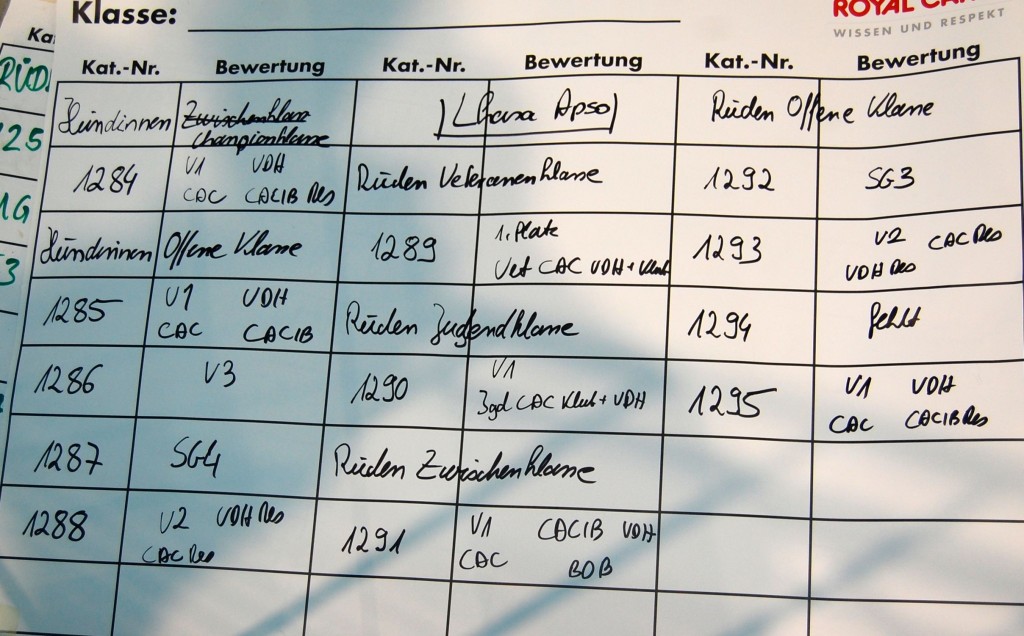 Klasse:
ROYAL CAN
WISSEN UND RESPEKT
Ka
RÜD
25
1G
3
Kat.-Nr. Bewertung Kat.-Nr. Bewertung Kat.-Nr. Bewertung
Hündinnen Zwischenklasse
Championklasse
Lhasa Apso
Rüden Offene Klasse
1284 V1 VDH
CAC CACIB Res
Rüden Veteranenklasse
1292 SG3
Hündinnen Offene Klasse
1289 1. Platz
Vet CAC VDH + Klub
1293 V2 CAC Res
VDH Res
1285 V1 VDH
CAC CACIB
Rüden Jugendklasse
1294 fehlt
1286 V3
1290 V1
Jgd CAC Klub + VDH
1295 V1 VDH
CAC CACIB Res
1287 SG4
Rüden Zwischenklasse
1288 V2 VDH Res
CAC Res
1291 V1 CACIB VDH
CAC BOB